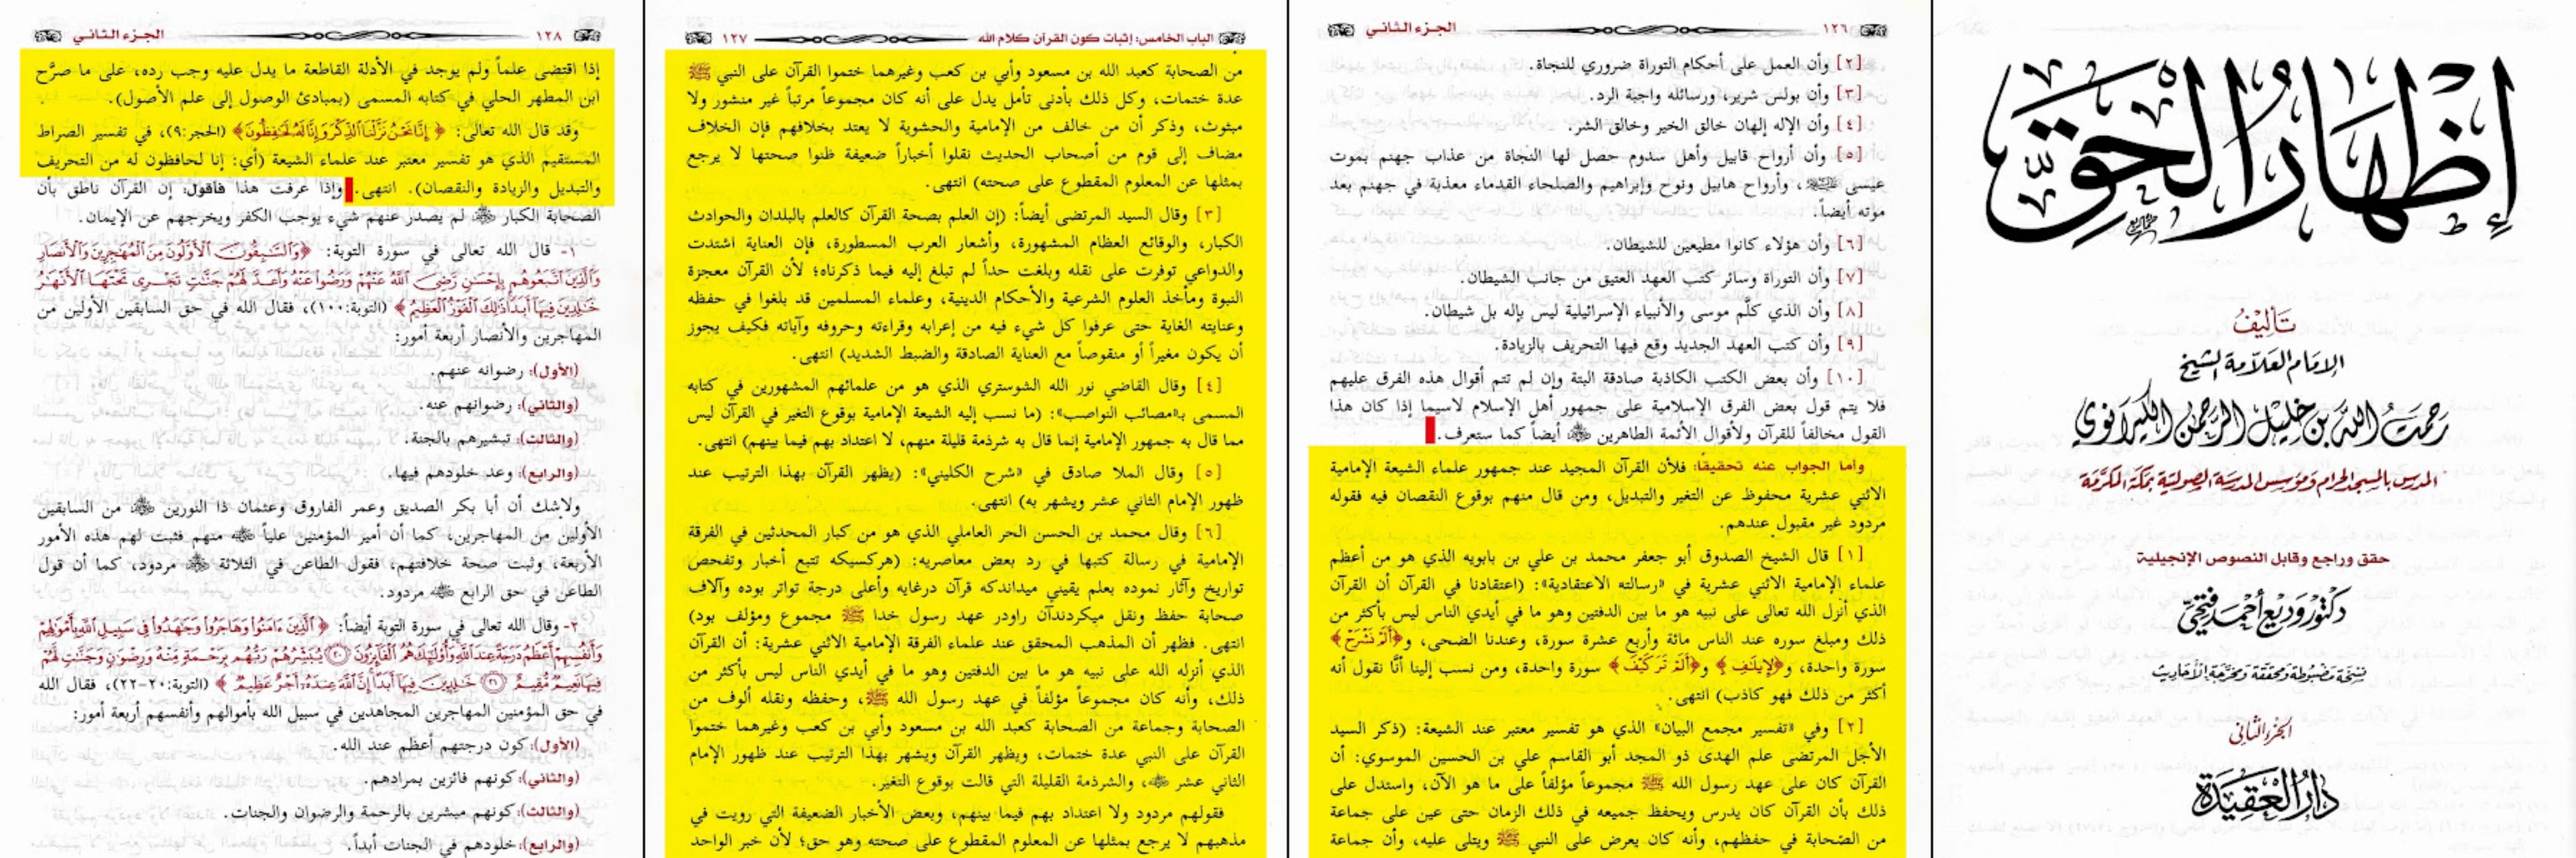 إظهار الحق
تأليف
الإمام العلامة الشيخ
رحمت الله بن خليل الرحمن الكيرانوي
المدرس بالمسجد الحرام ومؤسس المدرسة الصولتية بمكة المكرمة
حقق وراجع وقابل النصوص الإنجيلية
دكتور وديع أحمد فتحي
نسخة مضبوطة ومحققة ومخرجة الأحاديث
الجزء الثاني
دار العقيدة
١٢٦ الجزء الثاني
[٢] وأن العمل على أحكام التوراة ضروري للنجاة.
[٣] وأن بولس شرير، ورسائله واجبة الرد.
[٤] وأن الإله إلهان خالق الخير وخالق الشر.
[٥] وأن أرواح قابيل وأهل سدوم حصل لها النجاة من عذاب جهنم بموت
عيسى ﵇، وأرواح هابيل ونوح وإبراهيم والصلحاء القدماء معذبة في جهنم بعد
موته أيضاً.
[٦] وأن هؤلاء كانوا مطيعين للشيطان.
[٧] وأن التوراة وسائر كتب العهد العتيق من جانب الشيطان.
[٨] وأن الذي كلَّم موسى والأنبياء الإسرائيلية ليس بإله بل شيطان.
[٩] وأن كتب العهد الجديد وقع فيها التحريف بالزيادة.
[١٠] وأن بعض الكتب الكاذبة صادقة البتة وإن لم تتم أقوال هذه الفرق عليهم
فلا يتم قول بعض الفرق الإسلامية على جمهور أهل الإسلام لاسيما إذا كان هذا
القول مخالفاً للقرآن ولأقوال الأئمة الطاهرين ﵃ أيضاً كما ستعرف.
وأما الجواب عنه تحقيقاً: فلأن القرآن المجيد عند جمهور علماء الشيعة الإمامية
الاثني عشرية محفوظ عن التغير والتبديل، ومن قال منهم بوقوع النقصان فيه فقوله
مردود غير مقبول عندهم.
[١] قال الشيخ الصدوق أبو جعفر محمد بن علي بن بابويه الذي هو من أعظم
علماء الإمامية الاثني عشرية في «رسالته الاعتقادية»: (اعتقادنا في القرآن أن القرآن
الذي أنزل الله تعالى على نبيه هو ما بين الدفتين وهو ما في أيدي الناس ليس بأكثر من
ذلك ومبلغ سوره عند الناس مائة وأربع عشرة سورة، وعندنا الضحى، و﴿أَلَمْ نَشْرَحْ﴾
سورة واحدة، و﴿لِإِيلَافِ﴾ و﴿أَلَمْ تَرَ كَيْفَ﴾ سورة واحدة، ومن نسب إلينا أنَّا نقول أنه
أكثر من ذلك فهو كاذب) انتهى.
[٢] وفي «تفسير مجمع البيان» الذي هو تفسير معتبر عند الشيعة: (ذكر السيد
الأجل المرتضى علم الهدى ذو المجد أبو القاسم علي بن الحسين الموسوي: أن
القرآن كان على عهد رسول الله ﷺ مجموعاً مؤلفاً على ما هو الآن، واستدل على
ذلك بأن القرآن كان يدرس ويحفظ جميعه في ذلك الزمان حتى عين على جماعة
من الصحابة في حفظهم، وأنه كان يعرض على النبي ﷺ ويتلى عليه، وأن جماعة
الباب الخامس: إثبات كون القرآن كلام الله ١٢٧
من الصحابة كعبد الله بن مسعود وأبي بن كعب وغيرهما ختموا القرآن على النبي ﷺ
عدة ختمات، وكل ذلك بأدنى تأمل يدل على أنه كان مجموعاً مرتباً غير منشور ولا
مبثوث، وذكر أن من خالف من الإمامية والحشوية لا يعتد بخلافهم فإن الخلاف
مضاف إلى قوم من أصحاب الحديث نقلوا أخباراً ضعيفة ظنوا صحتها لا يرجع
بمثلها عن المعلوم المقطوع على صحته) انتهى.
[٣] وقال السيد المرتضى أيضاً: (إن العلم بصحة القرآن كالعلم بالبلدان والحوادث
الكبار، والوقائع العظام المشهورة، وأشعار العرب المسطورة، فإن العناية اشتدت
والدواعي توفرت على نقله وبلغت حداً لم تبلغ إليه فيما ذكرناه؛ لأن القرآن معجزة
النبوة ومأخذ العلوم الشرعية والأحكام الدينية، وعلماء المسلمين قد بلغوا في حفظه
وعنايته الغاية حتى عرفوا كل شيء فيه من إعرابه وقراءته وحروفه وآياته فكيف يجوز
أن يكون مغيراً أو منقوصاً مع العناية الصادقة والضبط الشديد) انتهى.
[٤] وقال القاضي نور الله الشوستري الذي هو من علمائهم المشهورين في كتابه
المسمى بـ«مصائب النواصب»: (ما نسب إليه الشيعة الإمامية بوقوع التغير في القرآن ليس
مما قال به جمهور الإمامية إنما قال به شرذمة قليلة منهم، لا اعتداد بهم فيما بينهم) انتهى.
[٥] وقال الملا صادق في «شرح الكليني»: (يظهر القرآن بهذا الترتيب عند
ظهور الإمام الثاني عشر ويشهر به) انتهى.
[٦] وقال محمد بن الحسن الحر العاملي الذي هو من كبار المحدثين في الفرقة
الإمامية في رسالة كتبها في رد بعض معاصريه: (هركسيكه تتبع أخبار وتفحص
تواريخ وآثار نموده بعلم يقيني ميداندكه قرآن درغايه وأعلى درجة تواتر بوده وآلاف
صحابة حفظ ونقل ميكردندآن راودر عهد رسول خدا ﷺ مجموع ومؤلف بود)
انتهى. فظهر أن المذهب المحقق عند علماء الفرقة الإمامية الاثني عشرية: أن القرآن
الذي أنزله الله على نبيه هو ما بين الدفتين وهو ما في أيدي الناس ليس بأكثر من
ذلك، وأنه كان مجموعاً مؤلفاً في عهد رسول الله ﷺ، وحفظه ونقله ألوف من
الصحابة وجماعة من الصحابة كعبد الله بن مسعود وأبي بن كعب وغيرهما ختموا
القرآن على النبي عدة ختمات، ويظهر القرآن ويشهر بهذا الترتيب عند ظهور الإمام
الثاني عشر ﵁، والشرذمة القليلة التي قالت بوقوع التغير.
فقولهم مردود ولا اعتداد بهم فيما بينهم، وبعض الأخبار الضعيفة التي رويت في
مذهبهم لا يرجع بمثلها عن المعلوم المقطوع على صحته وهو حق؛ لأن خبر الواحد
١٢٨ الجزء الثاني
إذا اقتضى علماً ولم يوجد في الأدلة القاطعة ما يدل عليه وجب رده، على ما صرَّح
ابن المطهر الحلي في كتابه المسمى (بمبادئ الوصول إلى علم الأصول).
وقد قال الله تعالى: ﴿إِنَّا نَحْنُ نَزَّلْنَا الذِّكْرَ وَإِنَّا لَهُ لَحَافِظُونَ﴾ (الحجر:٩)، في تفسير الصراط
المستقيم الذي هو تفسير معتبر عند علماء الشيعة (أي: إنا لحافظون له من التحريف
والتبديل والزيادة والنقصان). انتهى. وإذا عرفت هذا فأقول: إن القرآن ناطق بأن
الصحابة الكبار ﵃ لم يصدر عنهم شيء يوجب الكفر ويخرجهم عن الإيمان.
١- قال الله تعالى في سورة التوبة: ﴿وَالسَّابِقُونَ الْأَوَّلُونَ مِنَ الْمُهَاجِرِينَ وَالْأَنصَارِ
وَالَّذِينَ اتَّبَعُوهُم بِإِحْسَانٍ رَّضِيَ اللَّهُ عَنْهُمْ وَرَضُوا عَنْهُ وَأَعَدَّ لَهُمْ جَنَّاتٍ تَجْرِي تَحْتَهَا الْأَنْهَارُ
خَالِدِينَ فِيهَا أَبَدًا ذَلِكَ الْفَوْزُ الْعَظِيمُ﴾ (التوبة:١٠٠)، فقال الله في حق السابقين الأولين من
المهاجرين والأنصار أربعة أمور:
(الأول): رضوانه عنهم.
(والثاني): رضوانهم عنه.
(والثالث): تبشيرهم بالجنة.
(والرابع): وعد خلودهم فيها.
ولاشك أن أبا بكر الصديق وعمر الفاروق وعثمان ذا النورين ﵃ من السابقين
الأولين من المهاجرين، كما أن أمير المؤمنين علياً ﵁ منهم فثبت لهم هذه الأمور
الأربعة، وثبت صحة خلافتهم، فقول الطاعن في الثلاثة ﵃ مردود، كما أن قول
الطاعن في حق الرابع ﵁ مردود.
٢- وقال الله تعالى في سورة التوبة أيضاً: ﴿الَّذِينَ آمَنُوا وَهَاجَرُوا وَجَاهَدُوا فِي سَبِيلِ اللَّهِ بِأَمْوَالِهِمْ
وَأَنفُسِهِمْ أَعْظَمُ دَرَجَةً عِندَ اللَّهِ وَأُولَئِكَ هُمُ الْفَائِزُونَ ۝٢٠ يُبَشِّرُهُمْ رَبُّهُم بِرَحْمَةٍ مِّنْهُ وَرِضْوَانٍ وَجَنَّاتٍ لَّهُمْ
فِيهَا نَعِيمٌ مُّقِيمٌ ۝٢١ خَالِدِينَ فِيهَا أَبَدًا إِنَّ اللَّهَ عِندَهُ أَجْرٌ عَظِيمٌ﴾ (التوبة:٢٠-٢٢)، فقال الله
في حق المؤمنين المهاجرين المجاهدين في سبيل الله بأموالهم وأنفسهم أربعة أمور:
(الأول): كون درجتهم أعظم عند الله.
(والثاني): كونهم فائزين بمرادهم.
(والثالث): كونهم مبشرين بالرحمة والرضوان والجنات.
(والرابع): خلودهم في الجنات أبداً.